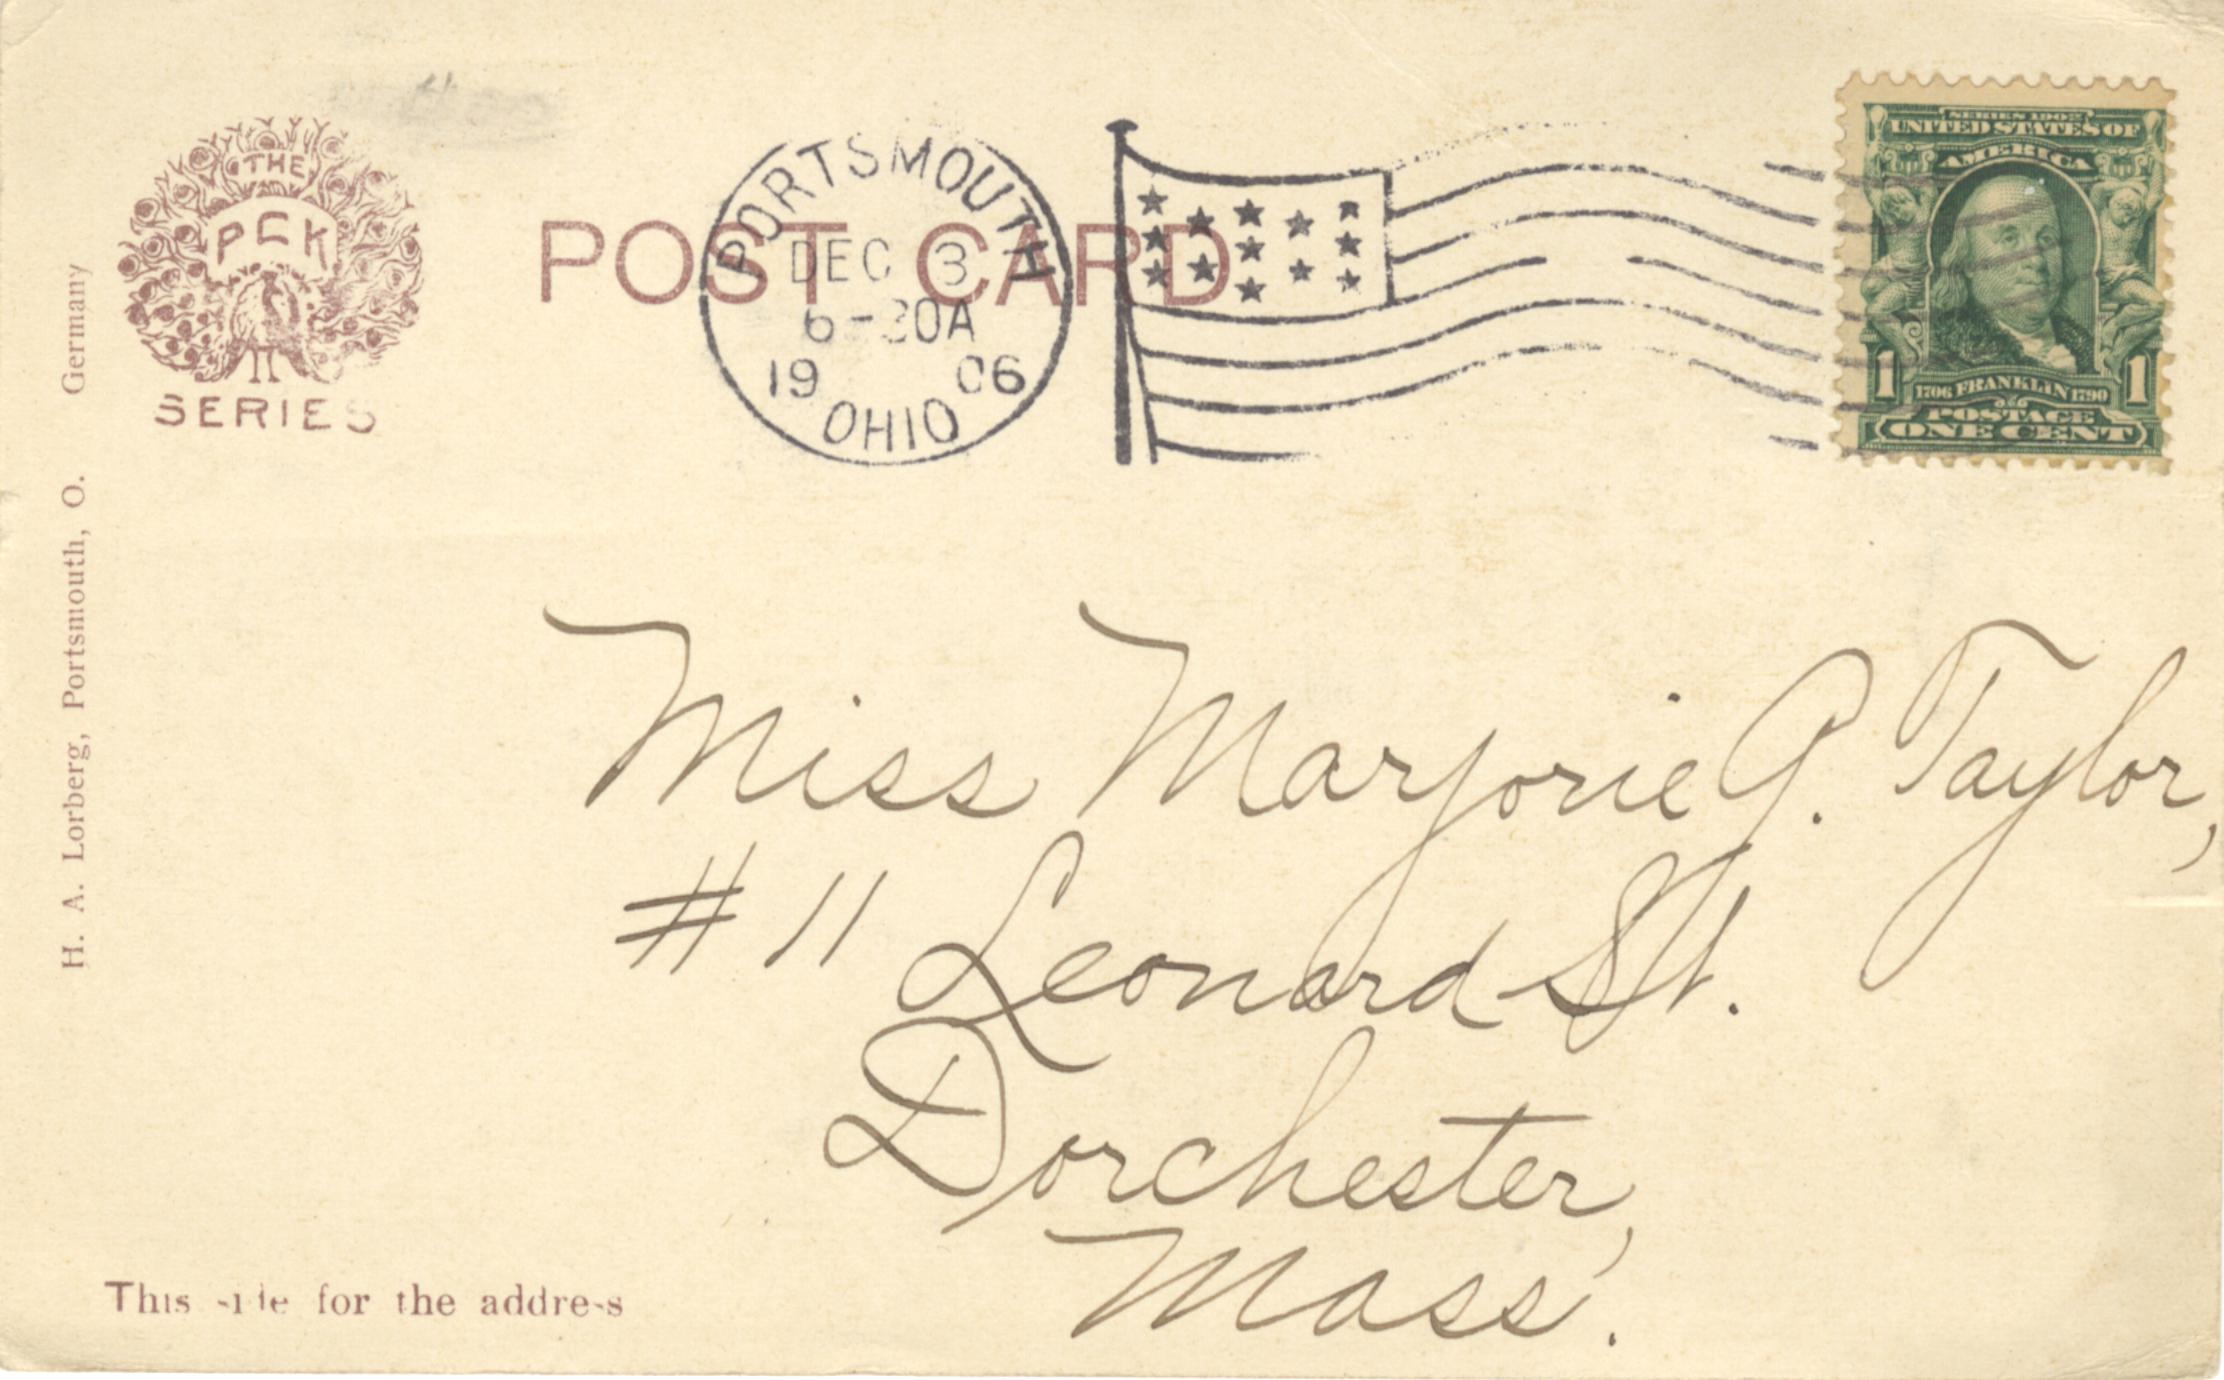 THE
PCK
SERIES
POST CARD
PORTSMOUTH
DEC 3
6-30A
1906
OHIO
SERIES 1902
UNITED STATES OF
AMERICA
1 1706 FRANKLIN 1790 1
POSTAGE
ONE CENT
H. A. Lorberg, Portsmouth, O. Germany
Miss Marjorie G. Taylor,
#11 Leonard St.
Dorchester,
Mass.
This side for the address